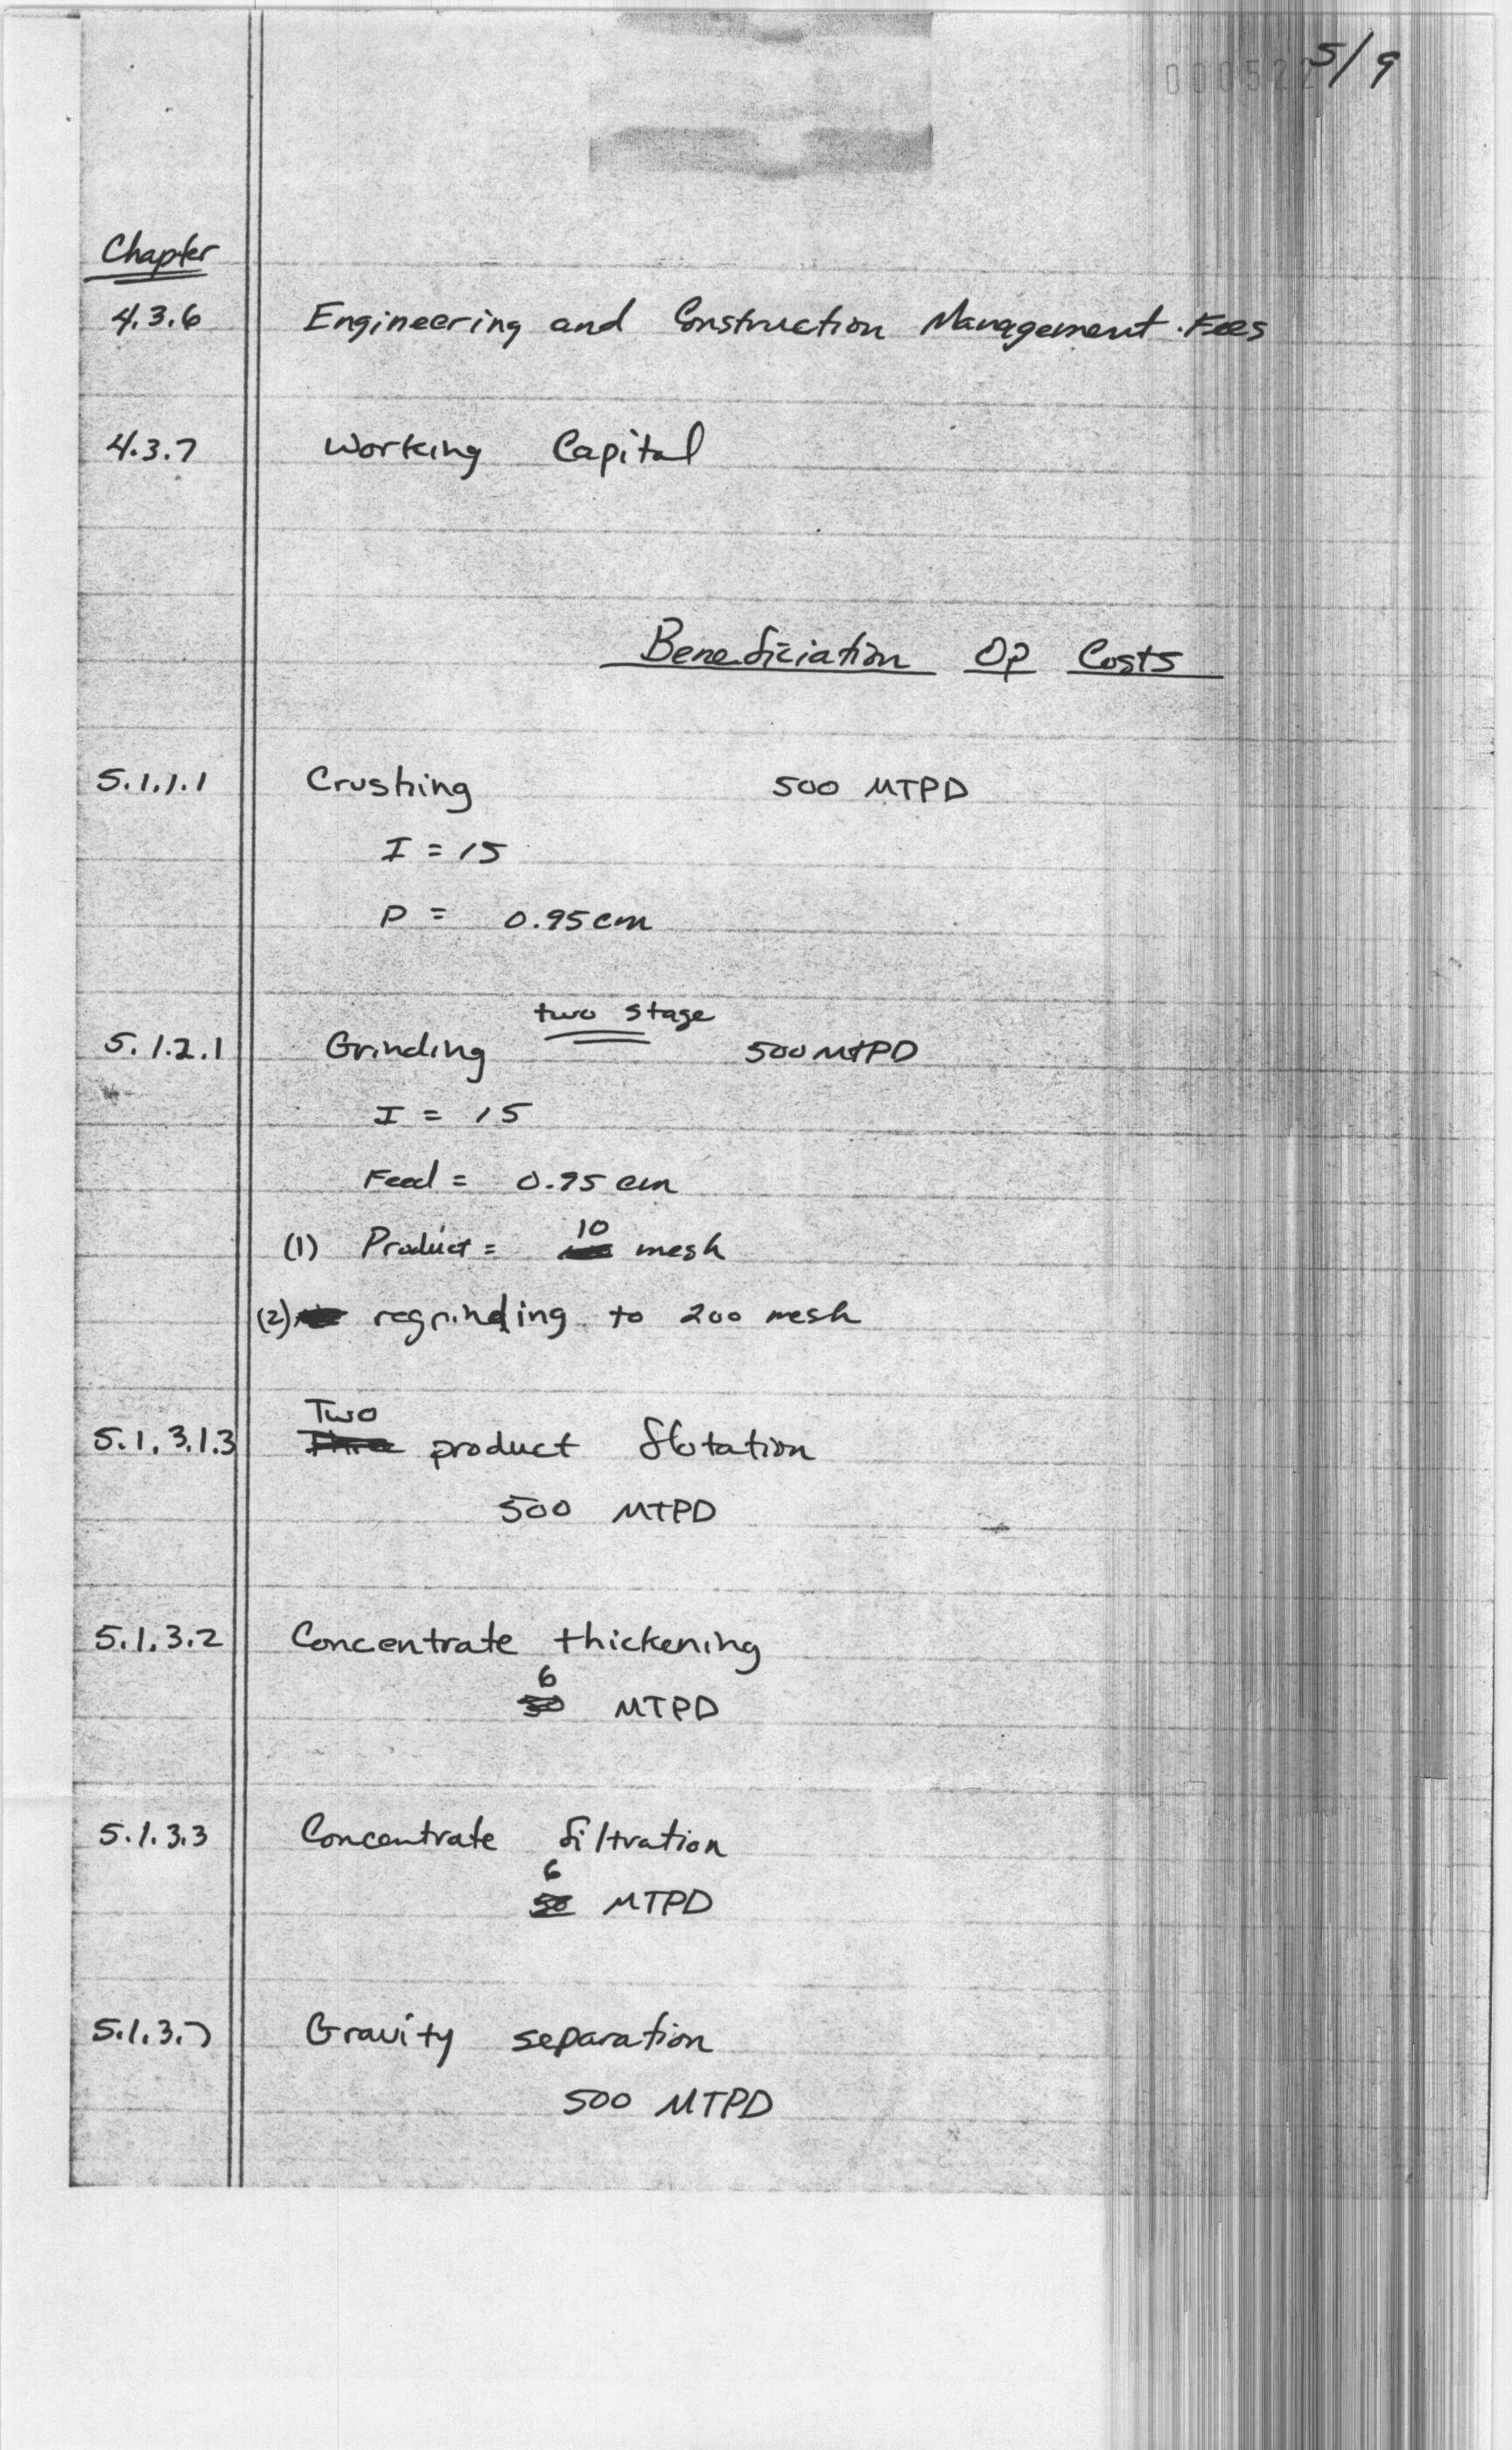 000522 5/9
Chapter
4.3.6 Engineering and Construction Management Fees
4.3.7 Working Capital
Beneficiation Op Costs
5.1.1.1 Crushing 500 MTPD
I = 15
P = 0.95 cm
two stage
5.1.2.1 Grinding 500 MTPD
I = 15
Feed = 0.95 cm
10
(1) Product = mesh
(2) regrinding to 200 mesh
Two
5.1.3.1.3 Three product flotation
500 MTPD
5.1.3.2 Concentrate thickening
6
50 MTPD
5.1.3.3 Concentrate filtration
6
50 MTPD
5.1.3.7 Gravity separation
500 MTPD